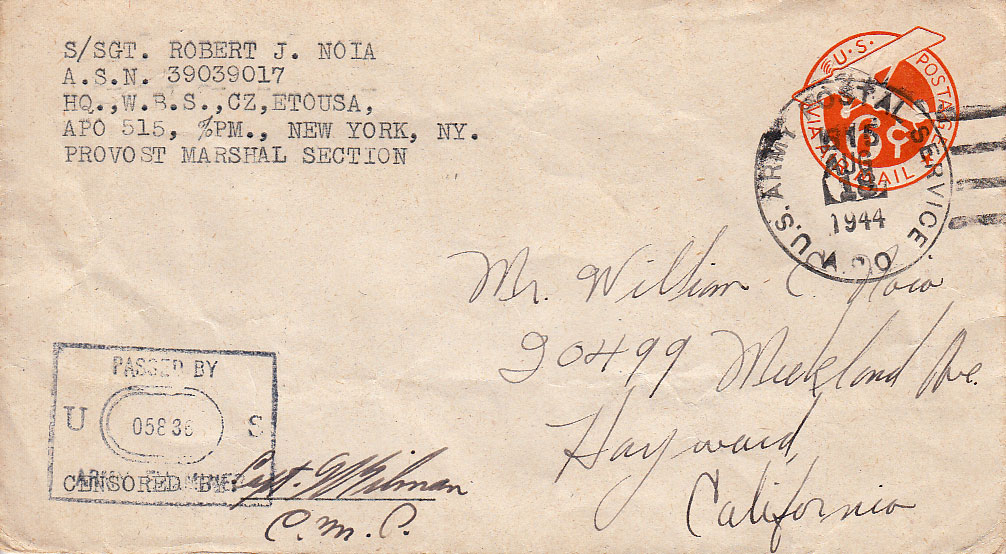 S/SGT. ROBERT J. NOIA
A.S.N. 39039017
HQ.,W.B.S.,CZ,ETOUSA,
APO 515, %PM., NEW YORK, NY.
PROVOST MARSHAL SECTION
U.S. POSTAGE
VIA AIR MAIL
6c
U.S. ARMY POSTAL SERVICE
A.P.O.
15
1944
Mr. William C. Noia
20499 Meekland Ave.
Hayward,
California
PASSED BY
U 05836 S
ARMY EXAMINER
CENSORED BY: Capt.
C.M.P.